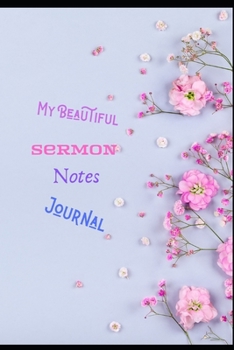 My Beautiful
Sermon
Notes
Journal